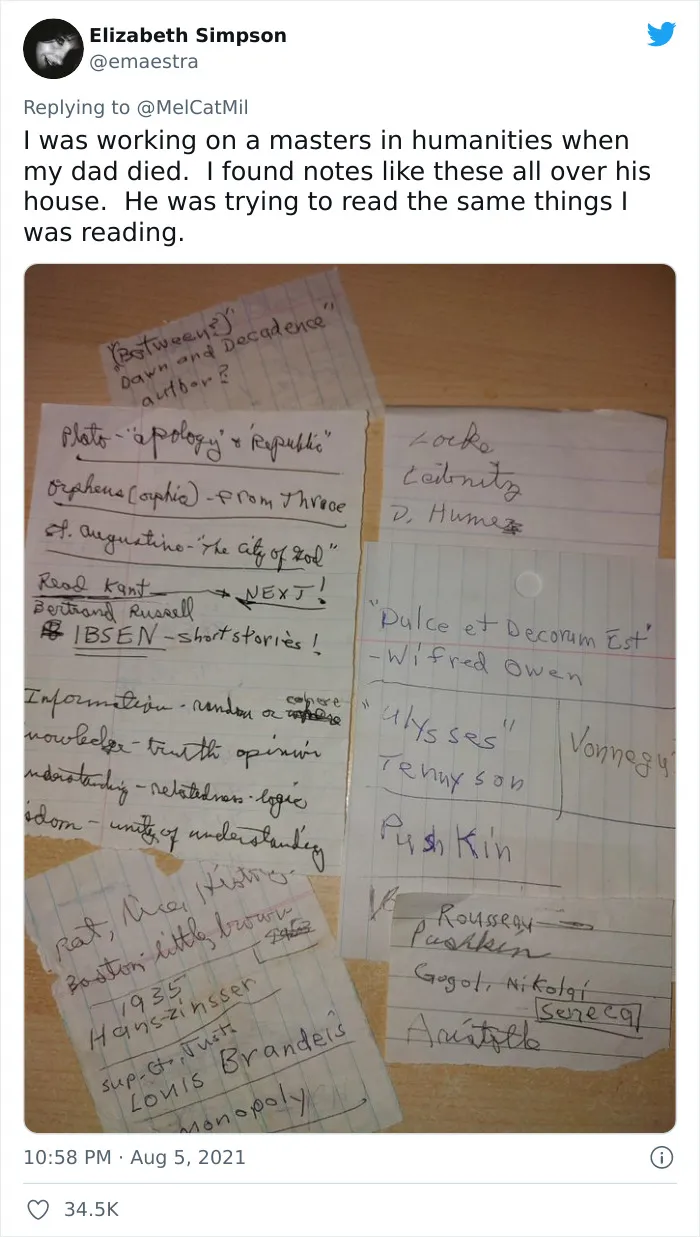 Elizabeth Simpson
@emaestra
Replying to @MelCatMil
I was working on a masters in humanities when
my dad died. I found notes like these all over his
house. He was trying to read the same things I
was reading.
"(Between?)"
"Dawn and Decadence"
author?
Plato-"apology" & "Republic"
Orpheus (orphic) - From Thrace
St. Augustine-"The City of God"
Read Kant → NEXT!
Bertrand Russell
IBSEN - short stories!
Information - random or cohere
nowledge - truth opinion
nderstanding - relatedness - logic
isdom - unity of understanding
Rat, Lice, History
Boston: little, brown
1935
Hans Zinsser
Sup. Ct. Just.
Louis Brandeis
monopoly
Locke
Leibnitz
D. Hume
"Dulce et Decorum Est"
-Wifred Owen
"Ulysses"
Tennyson
Vonnegu
Pushkin
Rousseau
Pushkin
Gogol, Nikolai
Seneca
Aristotle
10:58 PM · Aug 5, 2021
34.5K